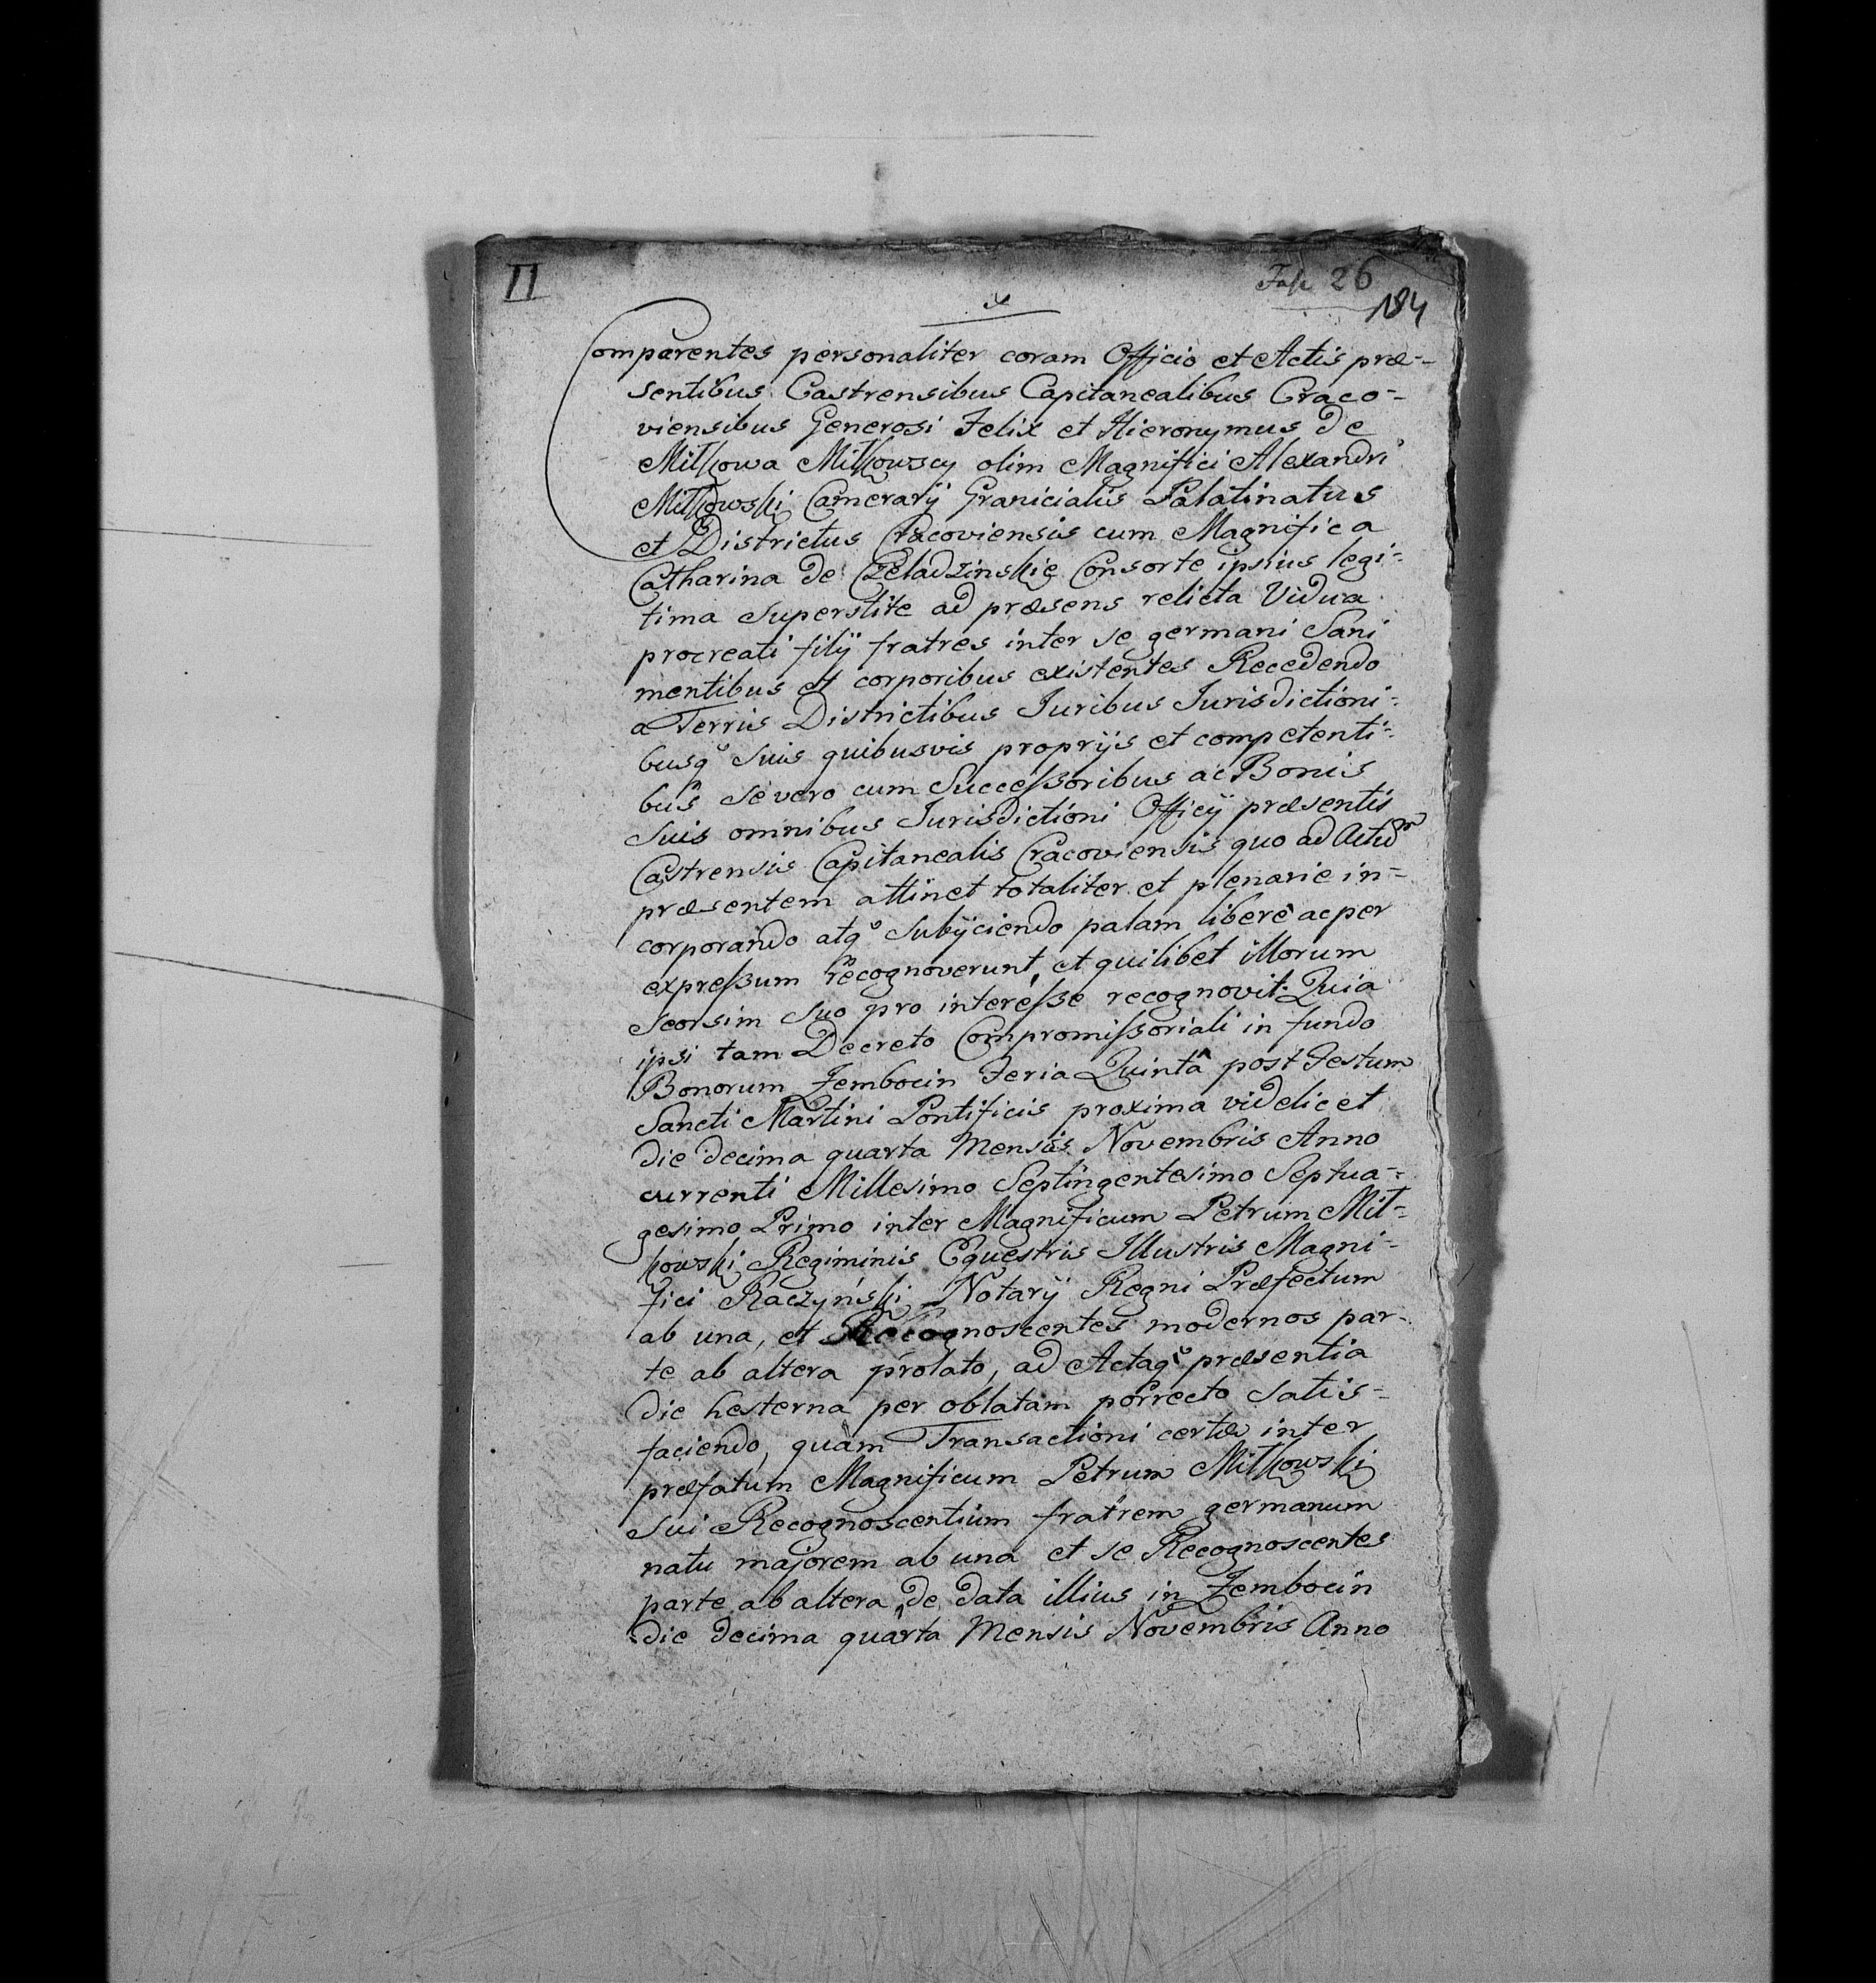 II
Fasc 26
184
Comparentes personaliter coram Officio et Actis præ=
sentibus Castrensibus Capitanealibus Craco=
viensibus Generosi Felix et Hieronymus de
Mitkowa Mitkowscy olim Magnifici Alexandri
Mitkowski Camerarij Granicialis Palatinatus
et Districtus Cracoviensis cum Magnifica
Catharina de Czeladzinskie Consorte ipsius legi=
tima superstite ad præsens relicta Vidua
procreati filij fratres inter se germani Sani
mentibus et corporibus existentes Recedendo
a Terris Districtibus Juribus Jurisdictioni=
busq suis quibusvis proprijs et competenti=
bus se vero cum Successoribus ac Bonis
suis omnibus Jurisdictioni Officij præsentis
Castrensis Capitanealis Cracoviensis quo ad Actum
præsentem attinet totaliter et plenarie in=
corporando atq subijciendo palam liberè ac per
expressum recognoverunt, et quilibet illorum
seorsim suo pro interesse recognovit. Quia
ipsi tam Decreto Compromissoriali in fundo
Bonorum Zembocin Feria Quintâ post Festum
Sancti Martini Pontificis proxima videlicet
die decima quarta Mensis Novembris Anno
currenti Millesimo Septingentesimo Septua=
gesimo Primo inter Magnificum Petrum Mit=
kowski Regiminis Equestris Illustris Magni=
fici Raczyński Notarij Regni Præfectum
ab una, et Recognoscentes modernos par=
te ab altera prolato, ad Actaq præsentia
die hesterna per oblatam porrecto satis=
faciendo, quàm Transactioni certæ inter
præfatum Magnificum Petrum Mitkowski
sui Recognoscentium fratrem germanum
natu majorem ab una et se Recognoscentes
parte ab altera de data illius in Zembocin
die decima quarta Mensis Novembris Anno